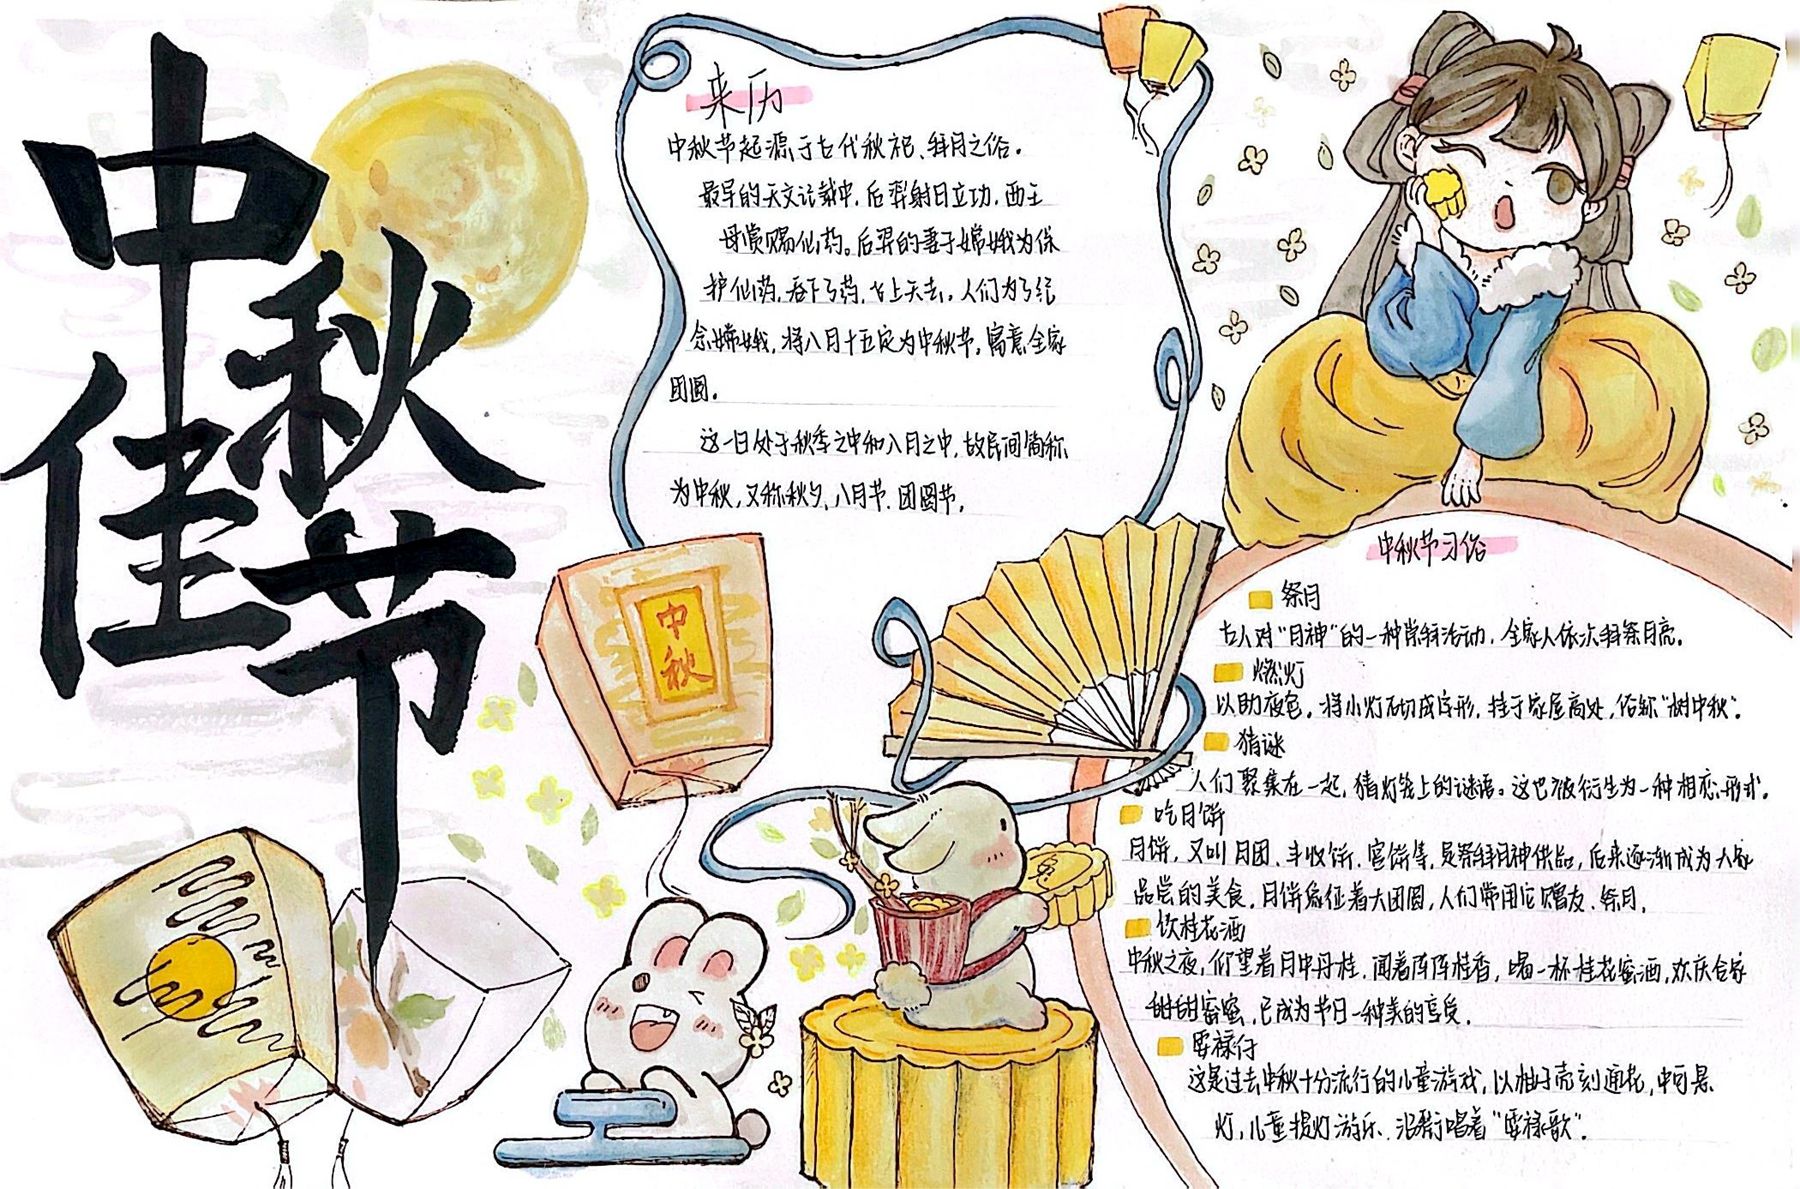 中秋佳节
来历
中秋节起源于古代秋祀、拜月之俗。
最早的天文记载中,后羿射日立功,西王
母赏赐仙药。后羿的妻子嫦娥为保
护仙药,吞下了药,飞上天去。人们为了纪
念嫦娥,将八月十五定为中秋节,寓意全家
团圆。
这一日处于秋季之中和八月之中,故民间简称
为中秋,又称秋夕、八月节、团圆节。
中秋
中秋节习俗
祭月
古人对“月神”的一种崇拜活动,全家人依次拜祭月亮。
燃灯
以助夜色。将小灯砌成字形,挂于家屋高处,俗称“树中秋”。
猜谜
人们聚集在一起,猜灯笼上的谜语。这也被衍生为一种相恋形式。
吃月饼
月饼,又叫月团、丰收饼、宫饼等,是祭拜月神供品,后来逐渐成为大家
品尝的美食,月饼象征着大团圆,人们常用它赠友、祭月。
饮桂花酒
中秋之夜,们望着月中丹桂,闻着阵阵桂香,喝一杯桂花蜜酒,欢庆合家
甜甜蜜蜜,已成为节日一种美的享受。
耍禄仔
这是过去中秋十分流行的儿童游戏,以柚子壳刻通花,中可悬
灯,儿童提灯游乐、沿街唱着“耍禄歌”。